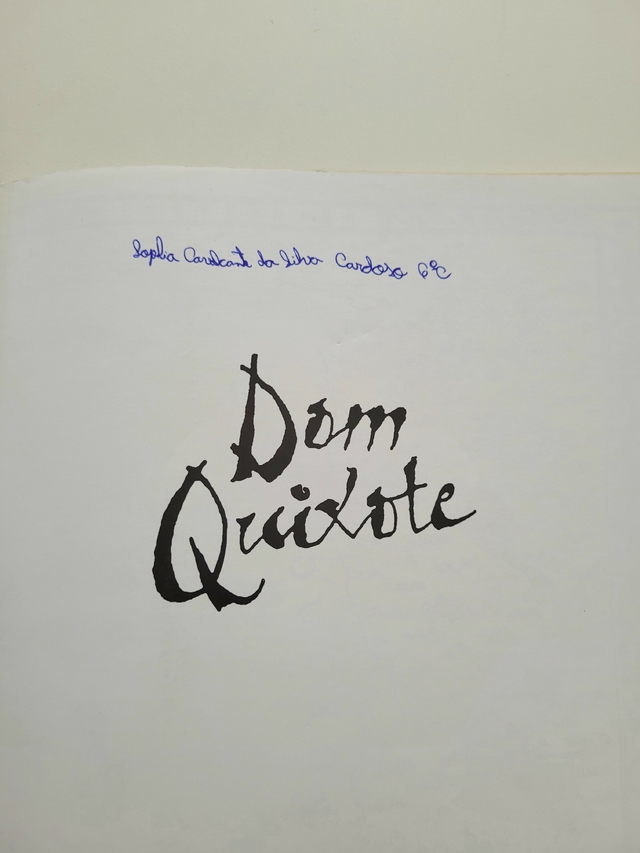 Sophia Cavalcante da Silva Cardoso 6ºC
Dom
Quixote